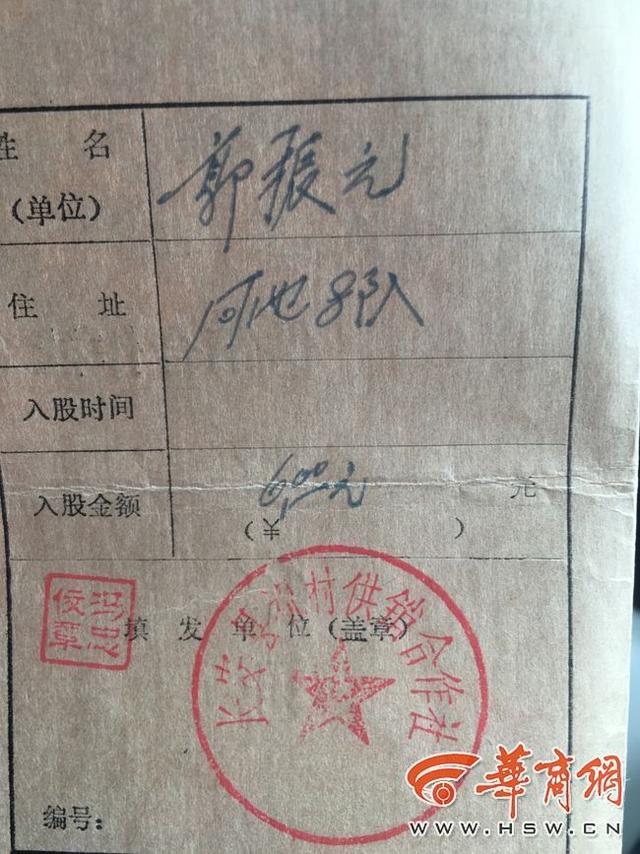 姓 名
(单位)
郭振元
住 址
河池8队
入股时间
入股金额
6.00元
元
(¥ )
填 发 单 位 (盖章)
长安 村供销合作社
编号:
華商網
WWW.HSW.CN